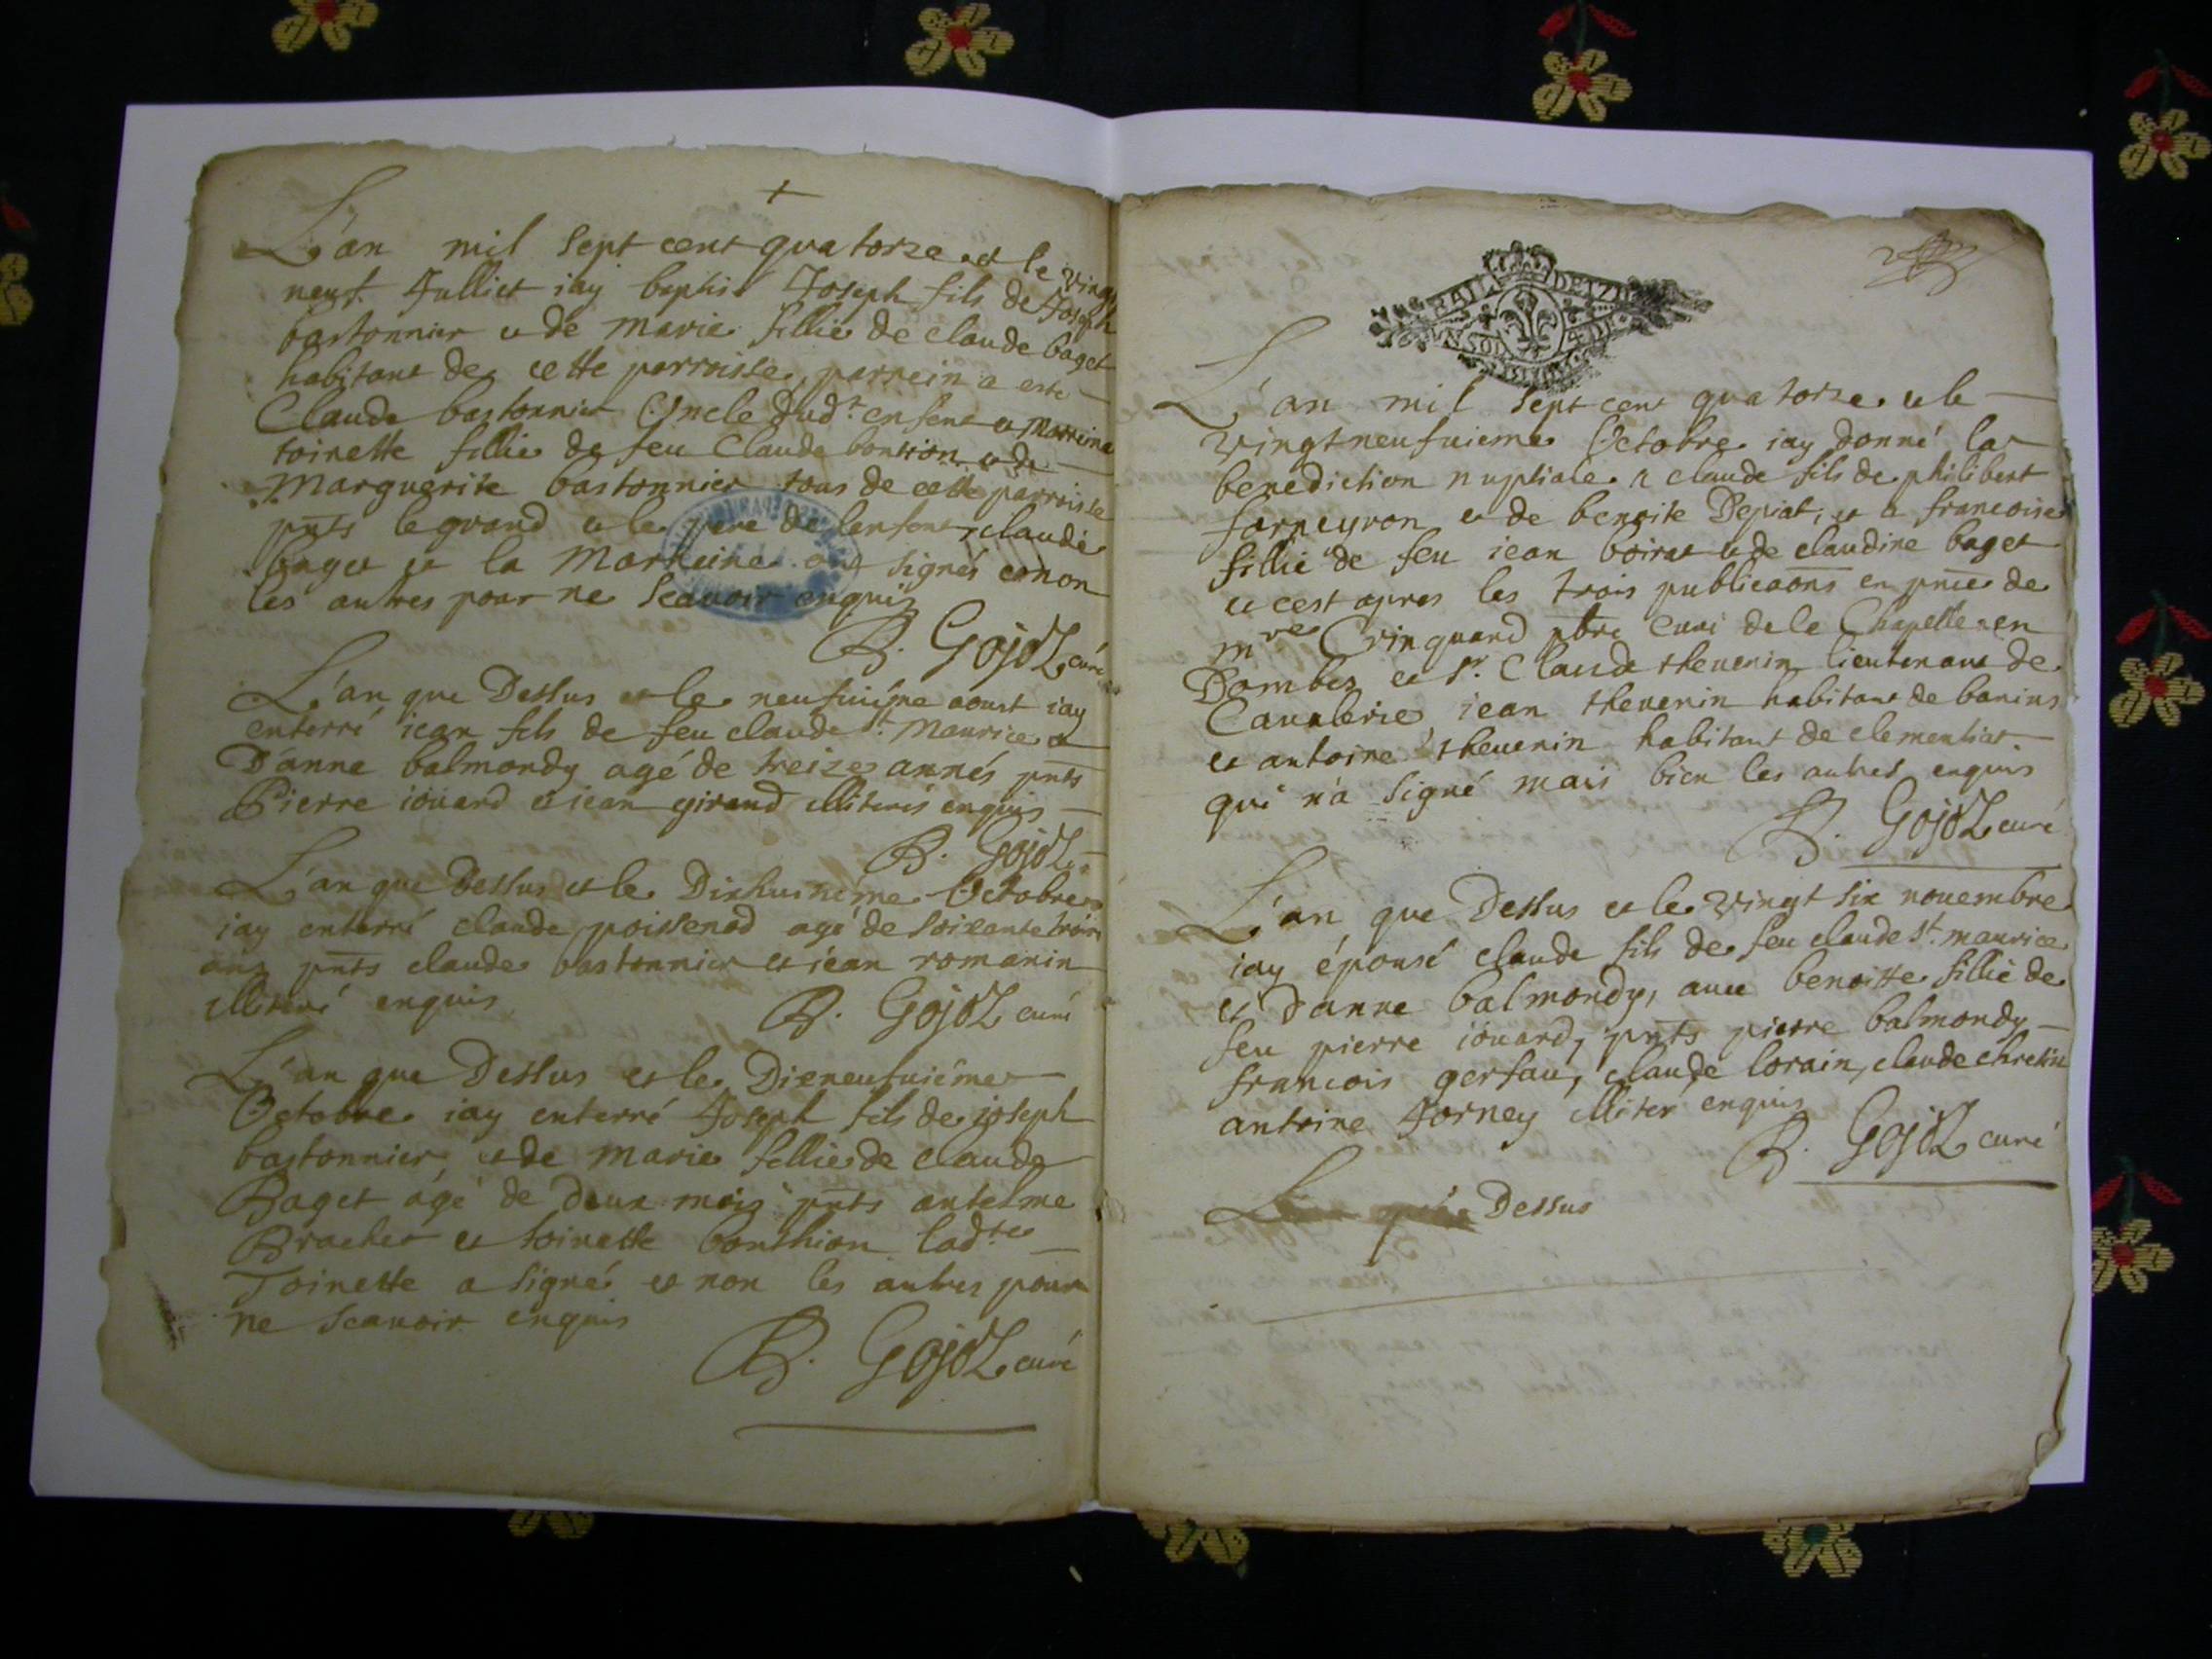 L'an mil sept cent quatorze et le vingt
neuf Julliet iay baptisé Joseph fils de Joseph
bastonnier et de marie fillie de claude baget
habitant de cette parroisse, parrein a esté
Claude bastonnier Oncle dudt enfent et Marreine
toinette fillie de feu Claude bontion et de
Marguerite bastonnier tous de cette parroisse
pnts le grand et le pere de lenfent, claude
baget et la Marreine ont signés et non
les autres pour ne Scavoir enquis
B. Gojoz curé
L'an que Dessus et le neufuiéme aoust iay
enterré iean fils de feu claude st. Maurice et
D'anne balmondy agé de treize annés pnts
Pierre iouard et iean giraud illiterés enquis
B. Gojoz
L'an que Dessus et le Dixhuitieme Octobre
iay enterré claude poissenod agé de soixante trois
ans pnts claude bastonnier et iean romanin
illiteré enquis
B. Gojoz curé
L'an que Dessus et le Dixneufuiéme
Octobre iay enterré Joseph fils de joseph
bastonnier, et de marie fillie de claude
Baget agé de deux mois pnts antelme
Brachet et toinette bonthion ladte
Toinette a signé et non les autres pour
ne Scavoir enquis
B. Gojoz curé
L'an mil sept cent quatorze et le
vingtneufuieme Octobre iay donné la
benediction nuptiale a claude fils de philibert
farneyron et de benoite Depiat, et a francoise
fillie de feu iean boirat et de claudine baget
et cest apres les trois publicaons en pnce de
mre Crinquand pbre Curé de la Chapelle en
Dombes et sr. Claude thevenin lieutenant de
Cavalerie, iean thevenin habitant de banins
et antoine thevenin habitant de clementiat
qui n'a signé mais bien les autres enquis
B. Gojoz curé
L'an que Dessus et le vingt six novembre
iay épousé claude fils de feu claude st. maurice
et d'anne balmondy, avec benoitte fillie de
feu pierre iouard, pnts pierre balmondy
francois gerfau, claude lorain, claude chretien
antoine Jorney illiter enquis
B. Gojoz curé
L'an que Dessus